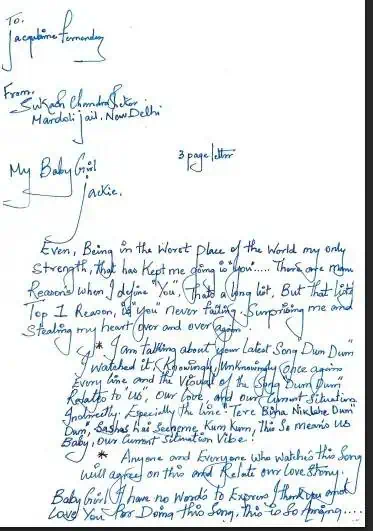 To,
Jacqueline Fernandez
From,
Sukash Chandrasekar
Mandoli jail. New Delhi
3 page letter
My Baby Girl
Jackie.
Even, Being in the Worst place of the World my only
Strength, that has Kept me going is "you"..... There are many
Reasons when I define "You", Thats a long list, But that list's
Top 1 Reason, is "you" never failing, Surprising me and
Stealing my heart over and over again.
* I am talking about your Latest Song "Dum Dum"
Watched it, Knowingly, Unknowingly once again
Every line and the Visual of the Song "Dum Dum"
Relates to "us", our Love, and our Current Situation
Indirectly. Especially the line "Tere Bina Nikluhe Dum"
Dum, Sashas hai Seeneme Kum Kum, this So means Us
Baby, our Current Situation Vibe!
* Anyone and Everyone who watches this Song
will agree on this and Relate our Love Story.
Baby Girl I have no Words to Express I thank you and
Love You for Doing this Song, this is So Amazing....